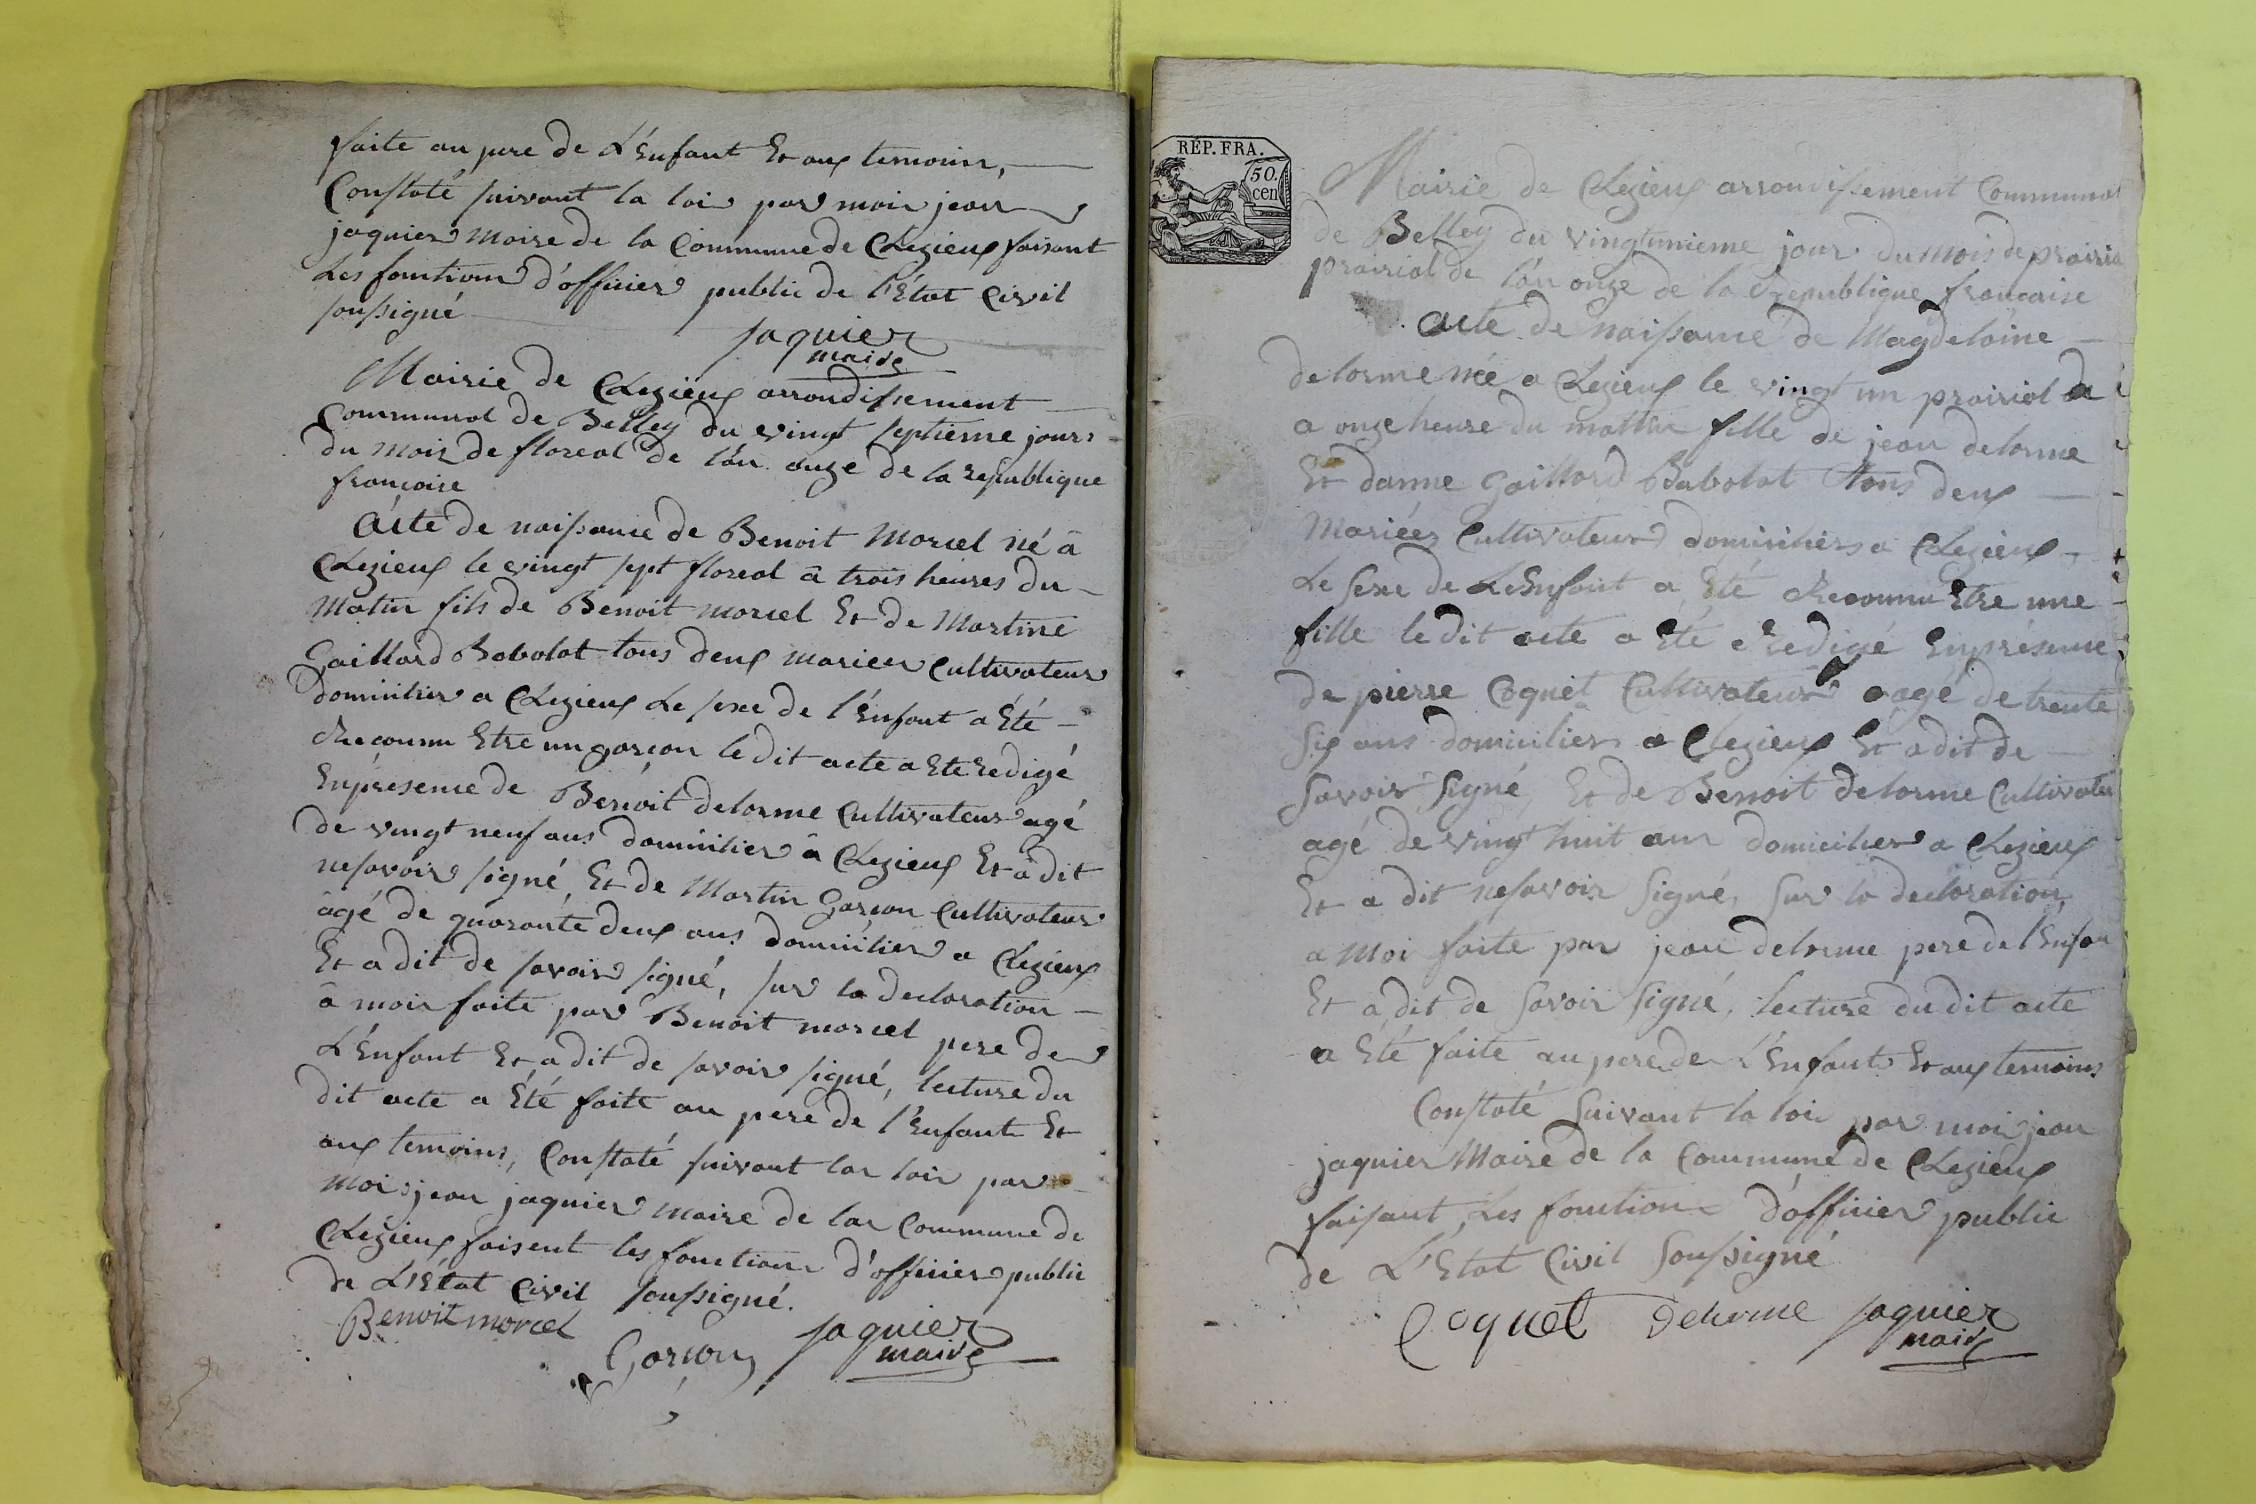 faite au pere de L'Enfant Et aux temoins,
Constaté suivant la loi par moi jean
jaquier Maire de la Commune de Chezieux faisant
Les fonctions d'officier public de l'État Civil
soussigné
jaquier
maire
Mairie de Chezieux arrondissement
Communal de Belley du vingt septieme jour
du mois de floreal de l'an onze de la republique
francaise
Acte de naissance de Benoit Morcel né à
Chezieux le vingt sept floreal à trois heures du
Matin fils de Benoit morcel Et de Martine
Gaillard Babolat tous deux mariees cultivateur
domicilier a Chezieux Le sexe de l'Enfant a Eté
Reconnu Etre un garcon le dit acte a Ete redigé
Enpresence de Benoit delorme Cultivateur agé
de vingt neuf ans domicilier à Chezieux Et à dit
nesavoir signé, Et de Martin Garcon Cultivateur
âgé de quarante deux ans domicilier a Chezieux
Et a dit de savoir signé, sur la declaration
à moi faite par Benoit morcel pere de
L'Enfant Et a dit de savoir signé, lecture du
dit acte a Été faite au pere de l'Enfant Et
aux temoins, Constaté suivant la loi par
Moi jean jaquier maire de la Commune de
Chezieux faisent les fonctions d'officier public
de L'État Civil soussigné.
Benoit morcel
Garcon
jaquier
maire
RÉP. FRA.
50.
cen
Mairie de Chezieux arrondissement Communal
de Belley du vingtunieme jour du mois de prairia
prairial de l'an onze de la Republique francaise
Acte de naissance de Magdelaine
delorme née a Chezieux le vingt un prairial a
a onze heure du mattin fille de jean delorme
Et danne Gaillard Babolat tous deux
Mariées Cultivateur domiciliers a Chezieux
Le sexe de L'Enfant a Eté Reconnu Etre une
fille le dit acte a Eté Redigé Enprésence
de pierre Coquet Cultivateur agé de trente
six ans domicilier a Chezieux Et a dit de
savoir signé, Et de Benoit delorme Cultivateu
agé de vingt huit ans domicilier a Chezieux
Et a dit nesavoir signé, sur la declaration
a Moi faite par jean delorme pere de l'Enfan
Et a dit de savoir signé, lecture du dit acte
a Eté faite au pere de L'Enfant Et aux temoins
Constaté suivant la loi par moi jean
jaquier Maire de la Commune de Chezieux
faisant Les fonction d'officier public
de L'Etat Civil soussigné
Coquet delorme jaquier
maire